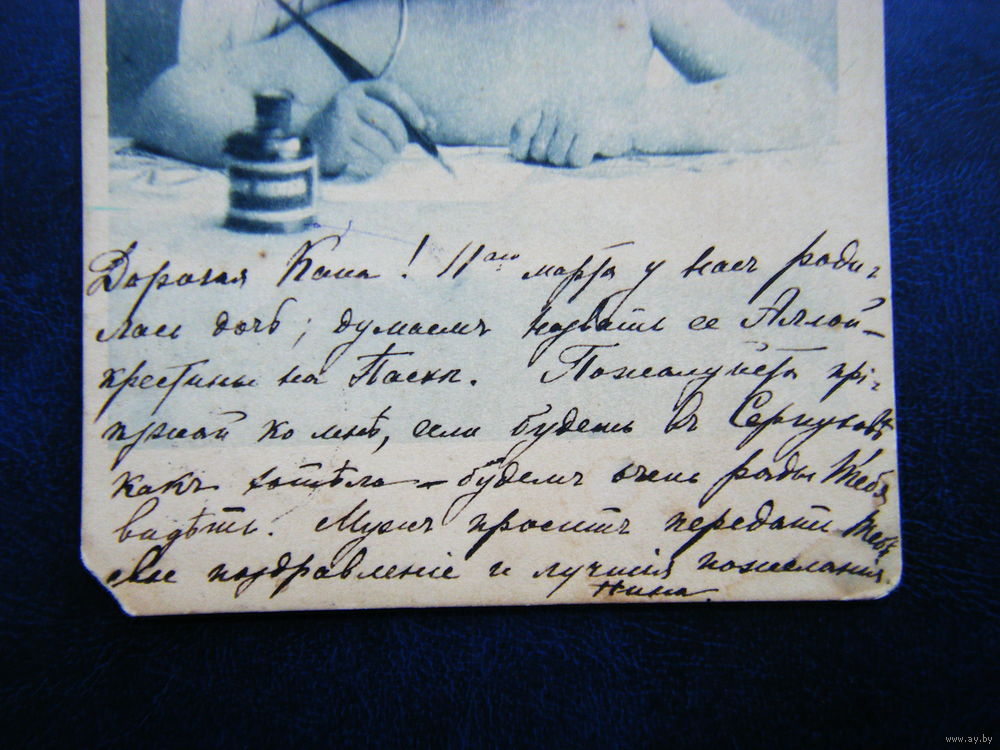 Дорогая Катя! 11го марта у насъ роди-
лась дочь; думаемъ назвать ее Аллой –
крестины на Пасхѣ. Пожалуйста прі-
ѣзжай ко мнѣ, если будешь въ Серпуховѣ
какъ хотѣла – будемъ очень рады Тебя
видѣть. Мужъ проситъ передать Тебѣ
свое поздравленіе и лучшія пожеланія.
Нина.
www.ay.by